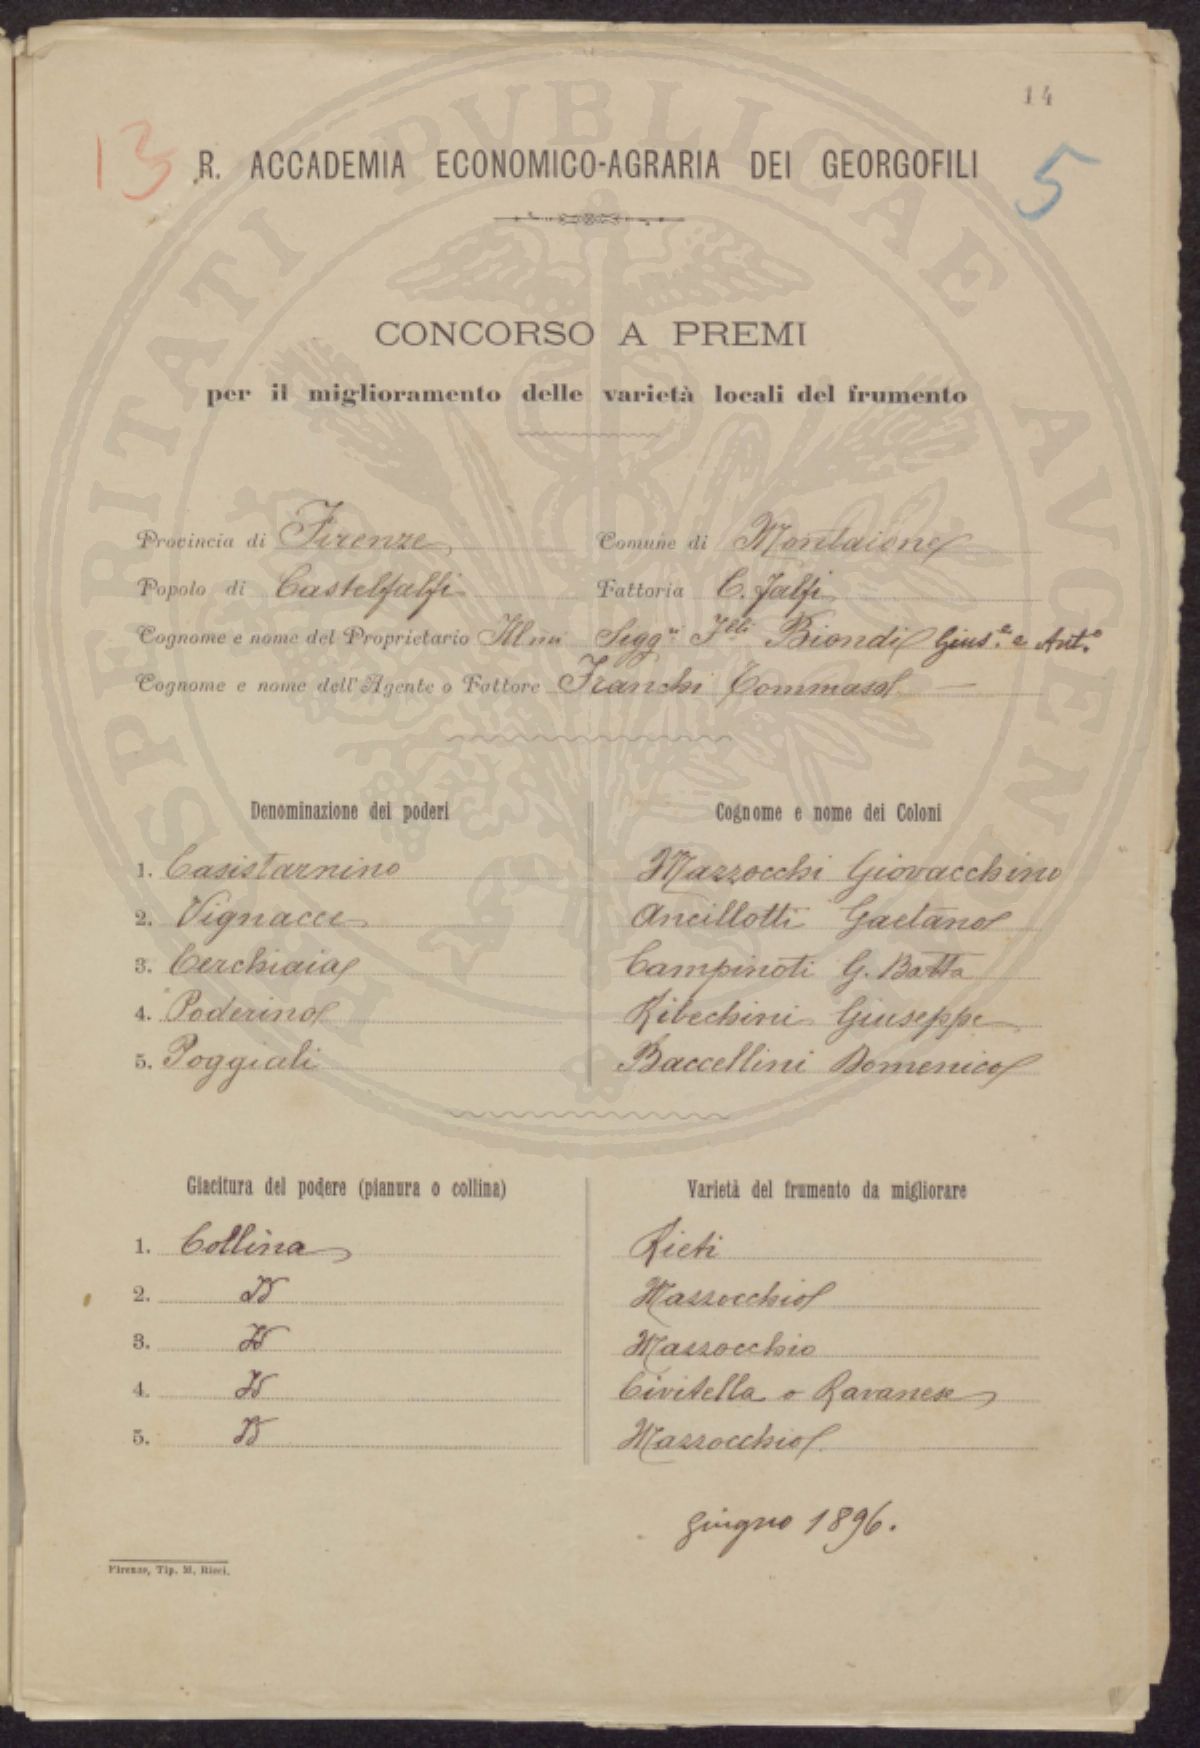 14
13
5
R. ACCADEMIA ECONOMICO-AGRARIA DEI GEORGOFILI
CONCORSO A PREMI
per il miglioramento delle varietà locali del frumento
Provincia di Firenze Comune di Montaione
Popolo di Castelfalfi Fattoria C. Falfi
Cognome e nome del Proprietario Illmi Siggri Flli Biondi Gius.e e Ant.o
Cognome e nome dell'Agente o Fattore Franchi Tommaso
Denominazione dei poderi Cognome e nome dei Coloni
1. Casistarnino Mazzocchi Giovacchino
2. Vignacce Ancillotti Gaetano
3. Cerchiaia Campinoti G. Batta
4. Poderino Ribechini Giuseppe
5. Poggiali Baccellini Domenico
Giacitura del podere (pianura o collina) Varietà del frumento da migliorare
1. Collina Rieti
2. Id Mazzocchio
3. Id Mazzocchio
4. Id Civitella o Ravanese
5. Id Mazzocchio
giugno 1896.
Firenze, Tip. M. Ricci.
PROSPERITATI PVBLICAE AVGENDAE